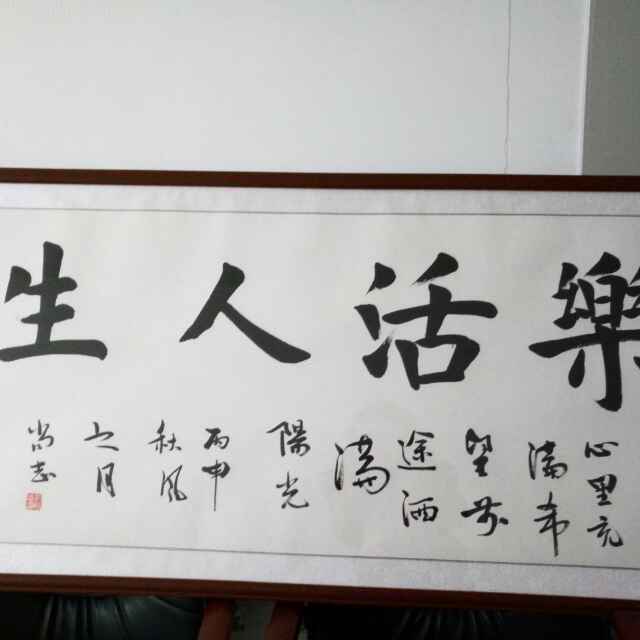 樂活人生
心里充
满希
望前
途洒
满
陽光
丙申
秋风
之月
尚志